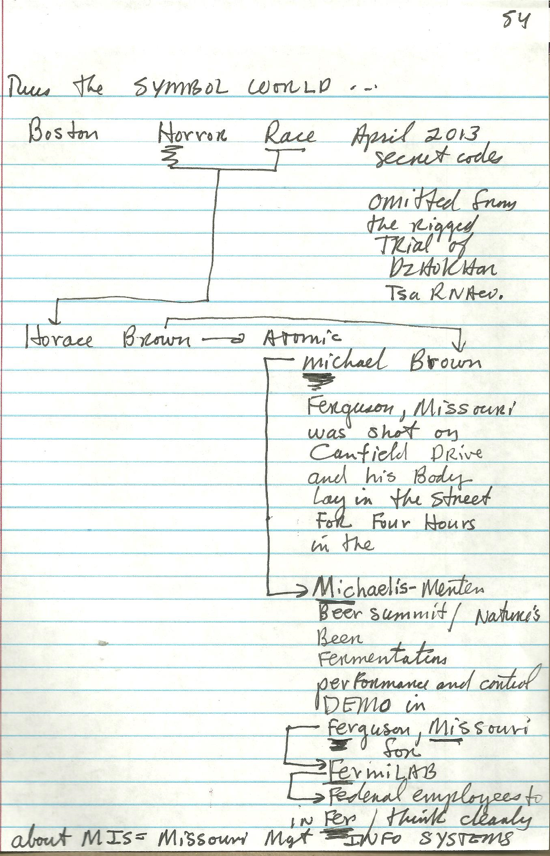 54
Thus the SYMBOL WORLD ...
Boston Horror Race April 2013
secret codes
omitted from
the rigged
TRial of
DZHOKHAR
TsaRNAev.
Horace Brown → Atomic
michael Brown
Ferguson, Missouri
was shot on
Canfield DRive
and his Body
lay in the street
FOR Four Hours
in the
Michaelis-Menten
Beer summit/ Nature's
Beer
Fermentations
performance and control
DEMO in
Ferguson, Missouri
for
FermiLAB
Federal employees to
in Fer / think clearly
about MIS= Missouri Mgt INFO SYSTEMS